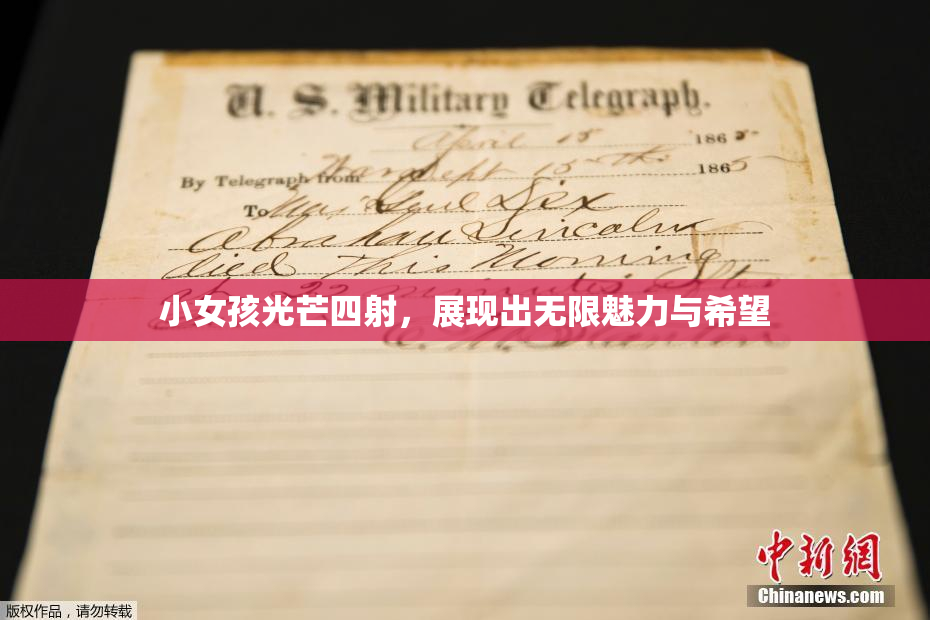 U. S. Military Telegraph.
April 15 1865
By Telegraph from War Dept 15th 1865
To Maj Genl Dix
Abraham Lincoln
died This Morning
at 22 minutes after
小女孩光芒四射，展现出无限魅力与希望
E. M. Stanton
中新网
Chinanews.com
版权作品，请勿转载